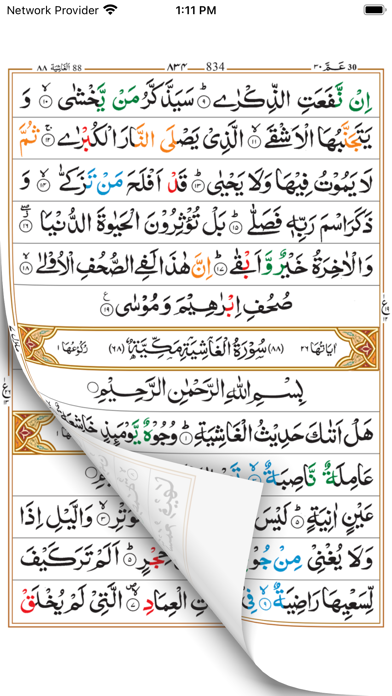 Network Provider 1:11 PM
88 الغاشية ٨٨ ٨٣٤ 834 30 عـم ٣٠
اِنْ نَّفَعَتِ الذِّكْرٰى ۹ سَيَذَّكَّرُ مَنْ يَّخْشٰى ۱۰ وَ
يَتَجَنَّبُهَا الْاَشْقَى ۱۱ الَّذِىْ يَصْلَى النَّارَ الْكُبْرٰى ۱۲ ثُمَّ
لَا يَمُوْتُ فِيْهَا وَلَا يَحْيٰى ۱۳ قَدْ اَفْلَحَ مَنْ تَزَكّٰى ۱۴ وَ
ذَكَرَ اسْمَ رَبِّهٖ فَصَلّٰى ۱۵ بَلْ تُؤْثِرُوْنَ الْحَيٰوةَ الدُّنْيَا ۱۶
وَالْاٰخِرَةُ خَيْرٌ وَّاَبْقٰى ۱۷ اِنَّ هٰذَا لَفِى الصُّحُفِ الْاُوْلٰى ۱۸
صُحُفِ اِبْرٰهِيْمَ وَمُوْسٰى ۱۹
اٰيَاتُهَا ٢٦ (٨٨) سُوْرَةُ الْغَاشِيَةِ مَكِّيَّةٌ (٦٨) رُكُوْعُهَا ١
بِسْمِ اللهِ الرَّحْمٰنِ الرَّحِيْمِ
هَلْ اَتٰىكَ حَدِيْثُ الْغَاشِيَةِ ۱ وُجُوْهٌ يَّوْمَئِذٍ خَاشِعَةٌ
عَامِلَةٌ نَّاصِبَةٌ
عَيْنٍ اٰنِيَةٍ ۵ لَيْسَ وَالَّيْلِ اِذَا
وَلَا يُغْنِىْ مِنْ جُوْ حِجْرٍ ۵ اَلَمْ تَرَ كَيْفَ
لِّسَعْيِهَا رَاضِيَةٌ ۹ فِىْ الْعِمَادِ ۷ الَّتِىْ لَمْ يُخْلَقْ